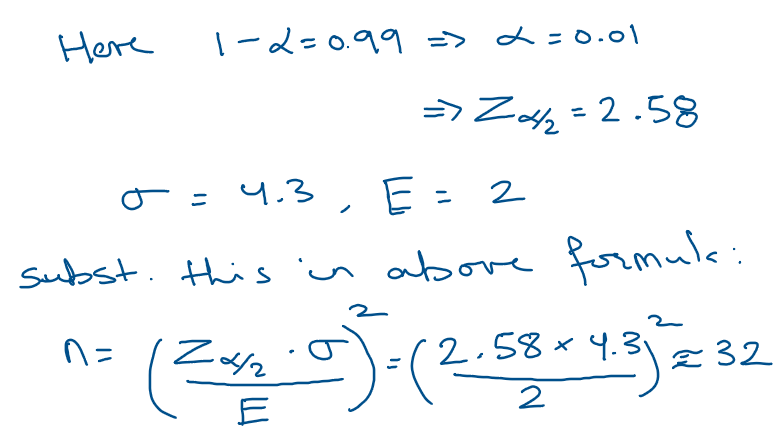 Here 1-α=0.99 => α=0.01
=> Zα/2 = 2.58
σ = 4.3, E = 2
subst. this in above formula:
n= (Zα/2 · σ / E)² = (2.58 × 4.3 / 2)² ≈ 32